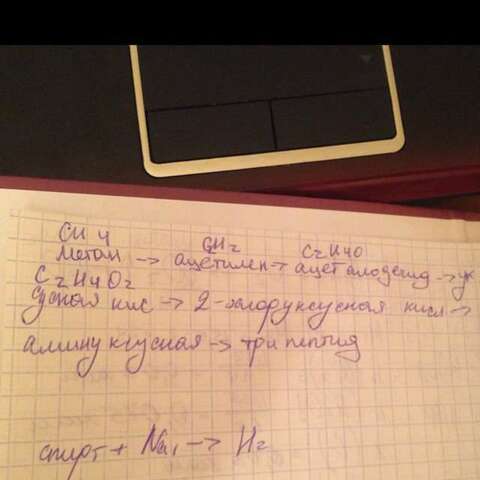 CH4 C2H2 C2H4O
метан → ацетилен → ацетальдегид → ук
C2H4O2
сусная кис → 2-хлоруксусная кисл →
аминуксусная → трипептид
спирт + Na → H2